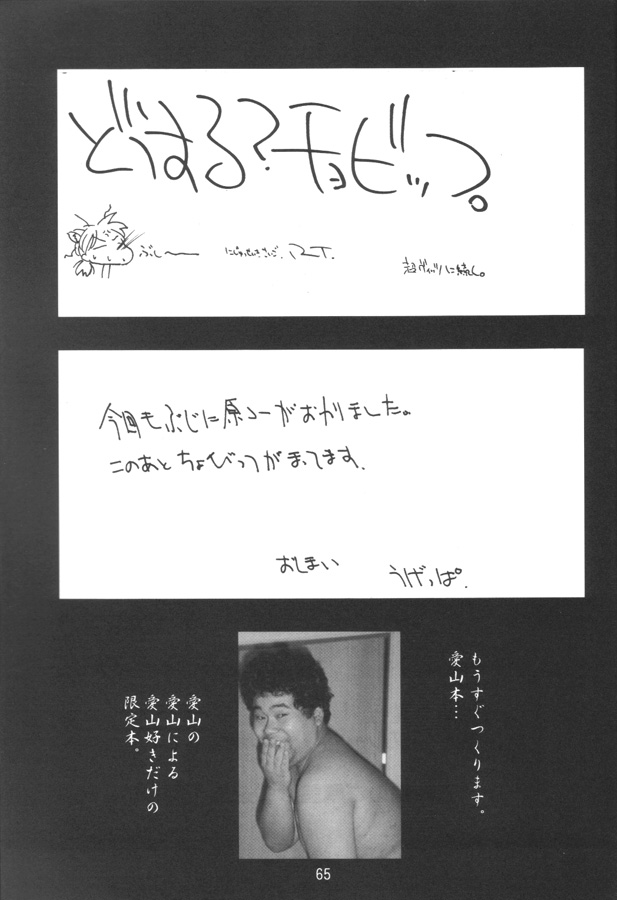 どうする?チョビッツ。
ぶしー
超ヴィッツに続く。
今回もぶじに原コーがおわりました。
このあとちょびっつがまってます.
おしまい
うげっぱ.
もうすぐつくります。
愛山本…
愛山の
愛山による
愛山好きだけの
限定本。
65